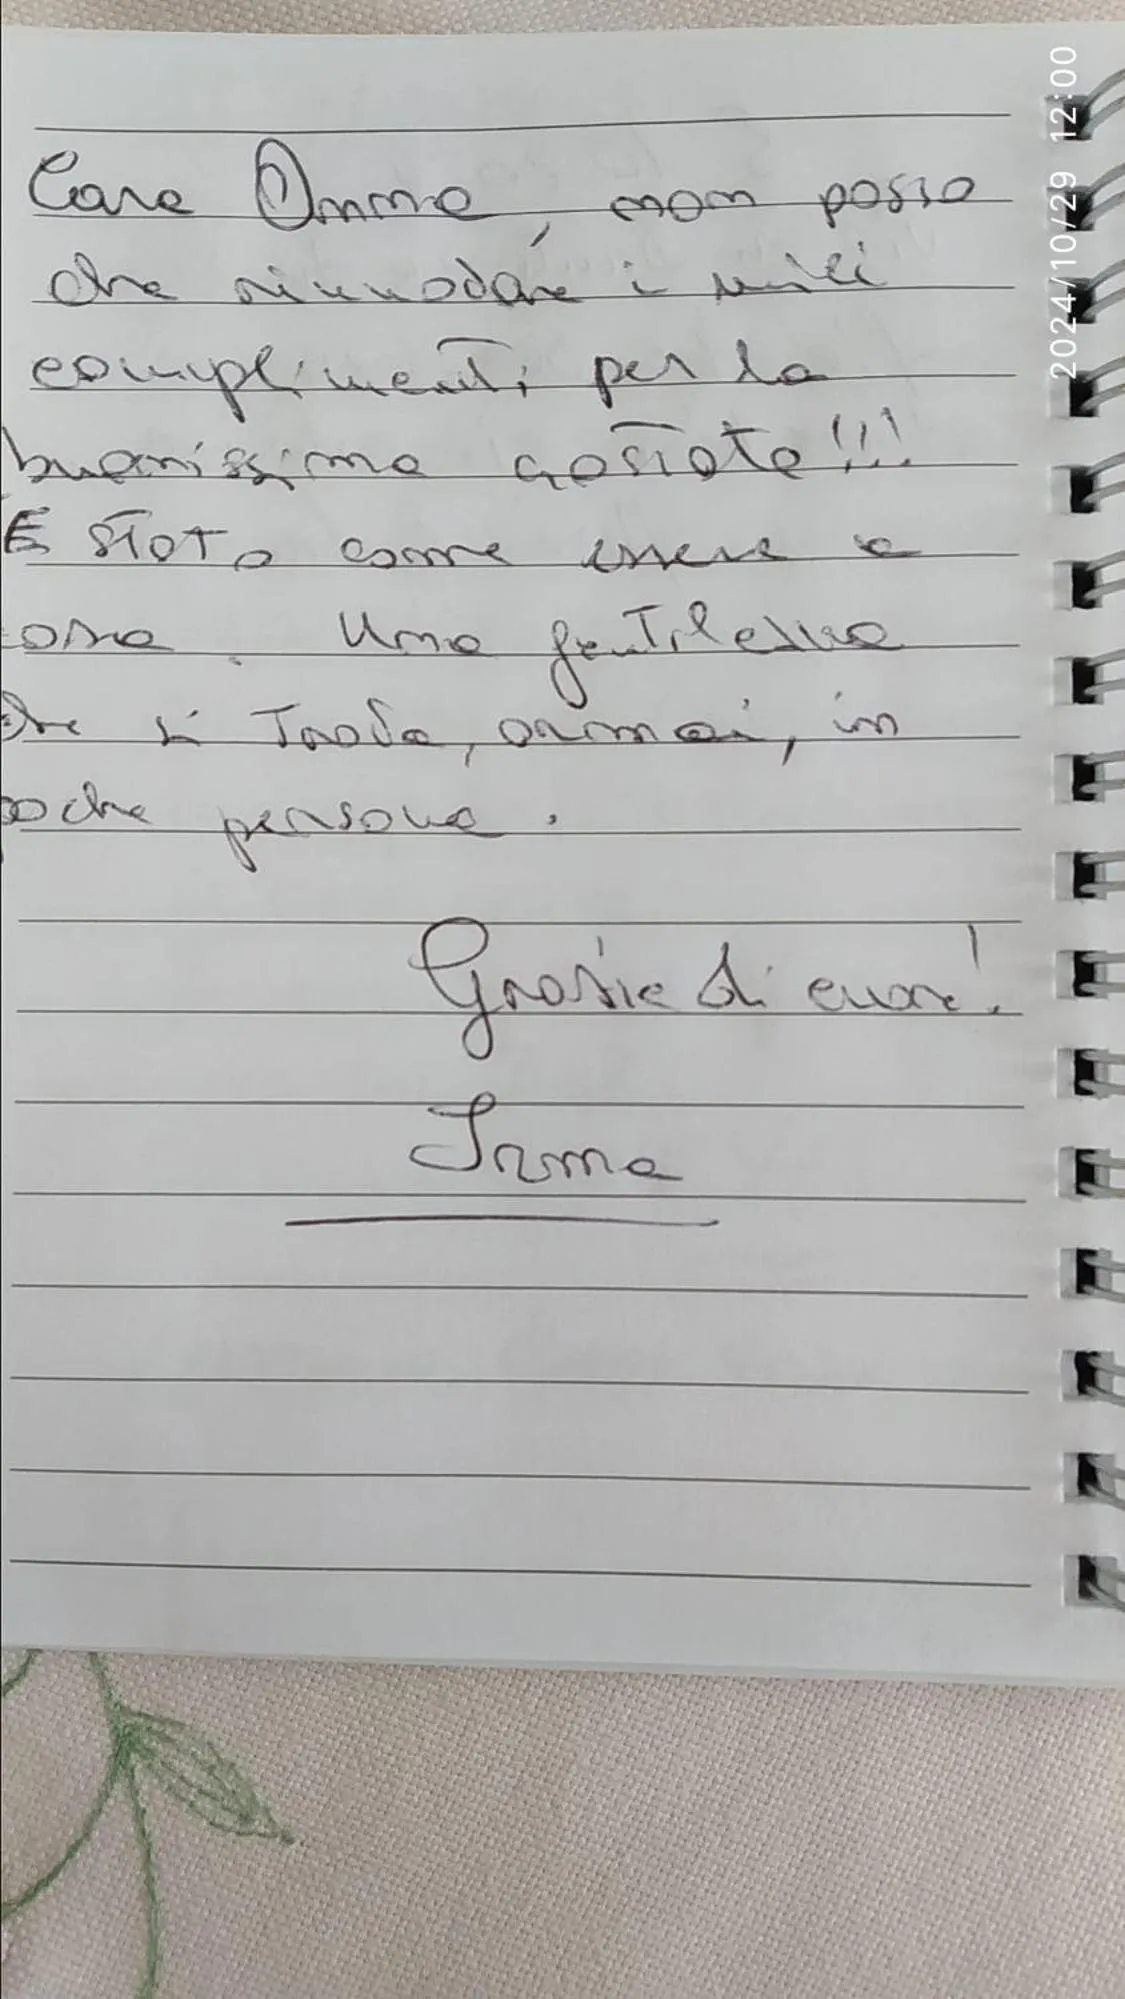 Cara Anna, non posso
che rinnovare i miei
complimenti per la
buonissima crostata!!!
È stato come essere a
casa. Una gentilezza
che si trova, ormai, in
poche persone.
Grazie di cuore!
Irma
2024/10/29 12:00